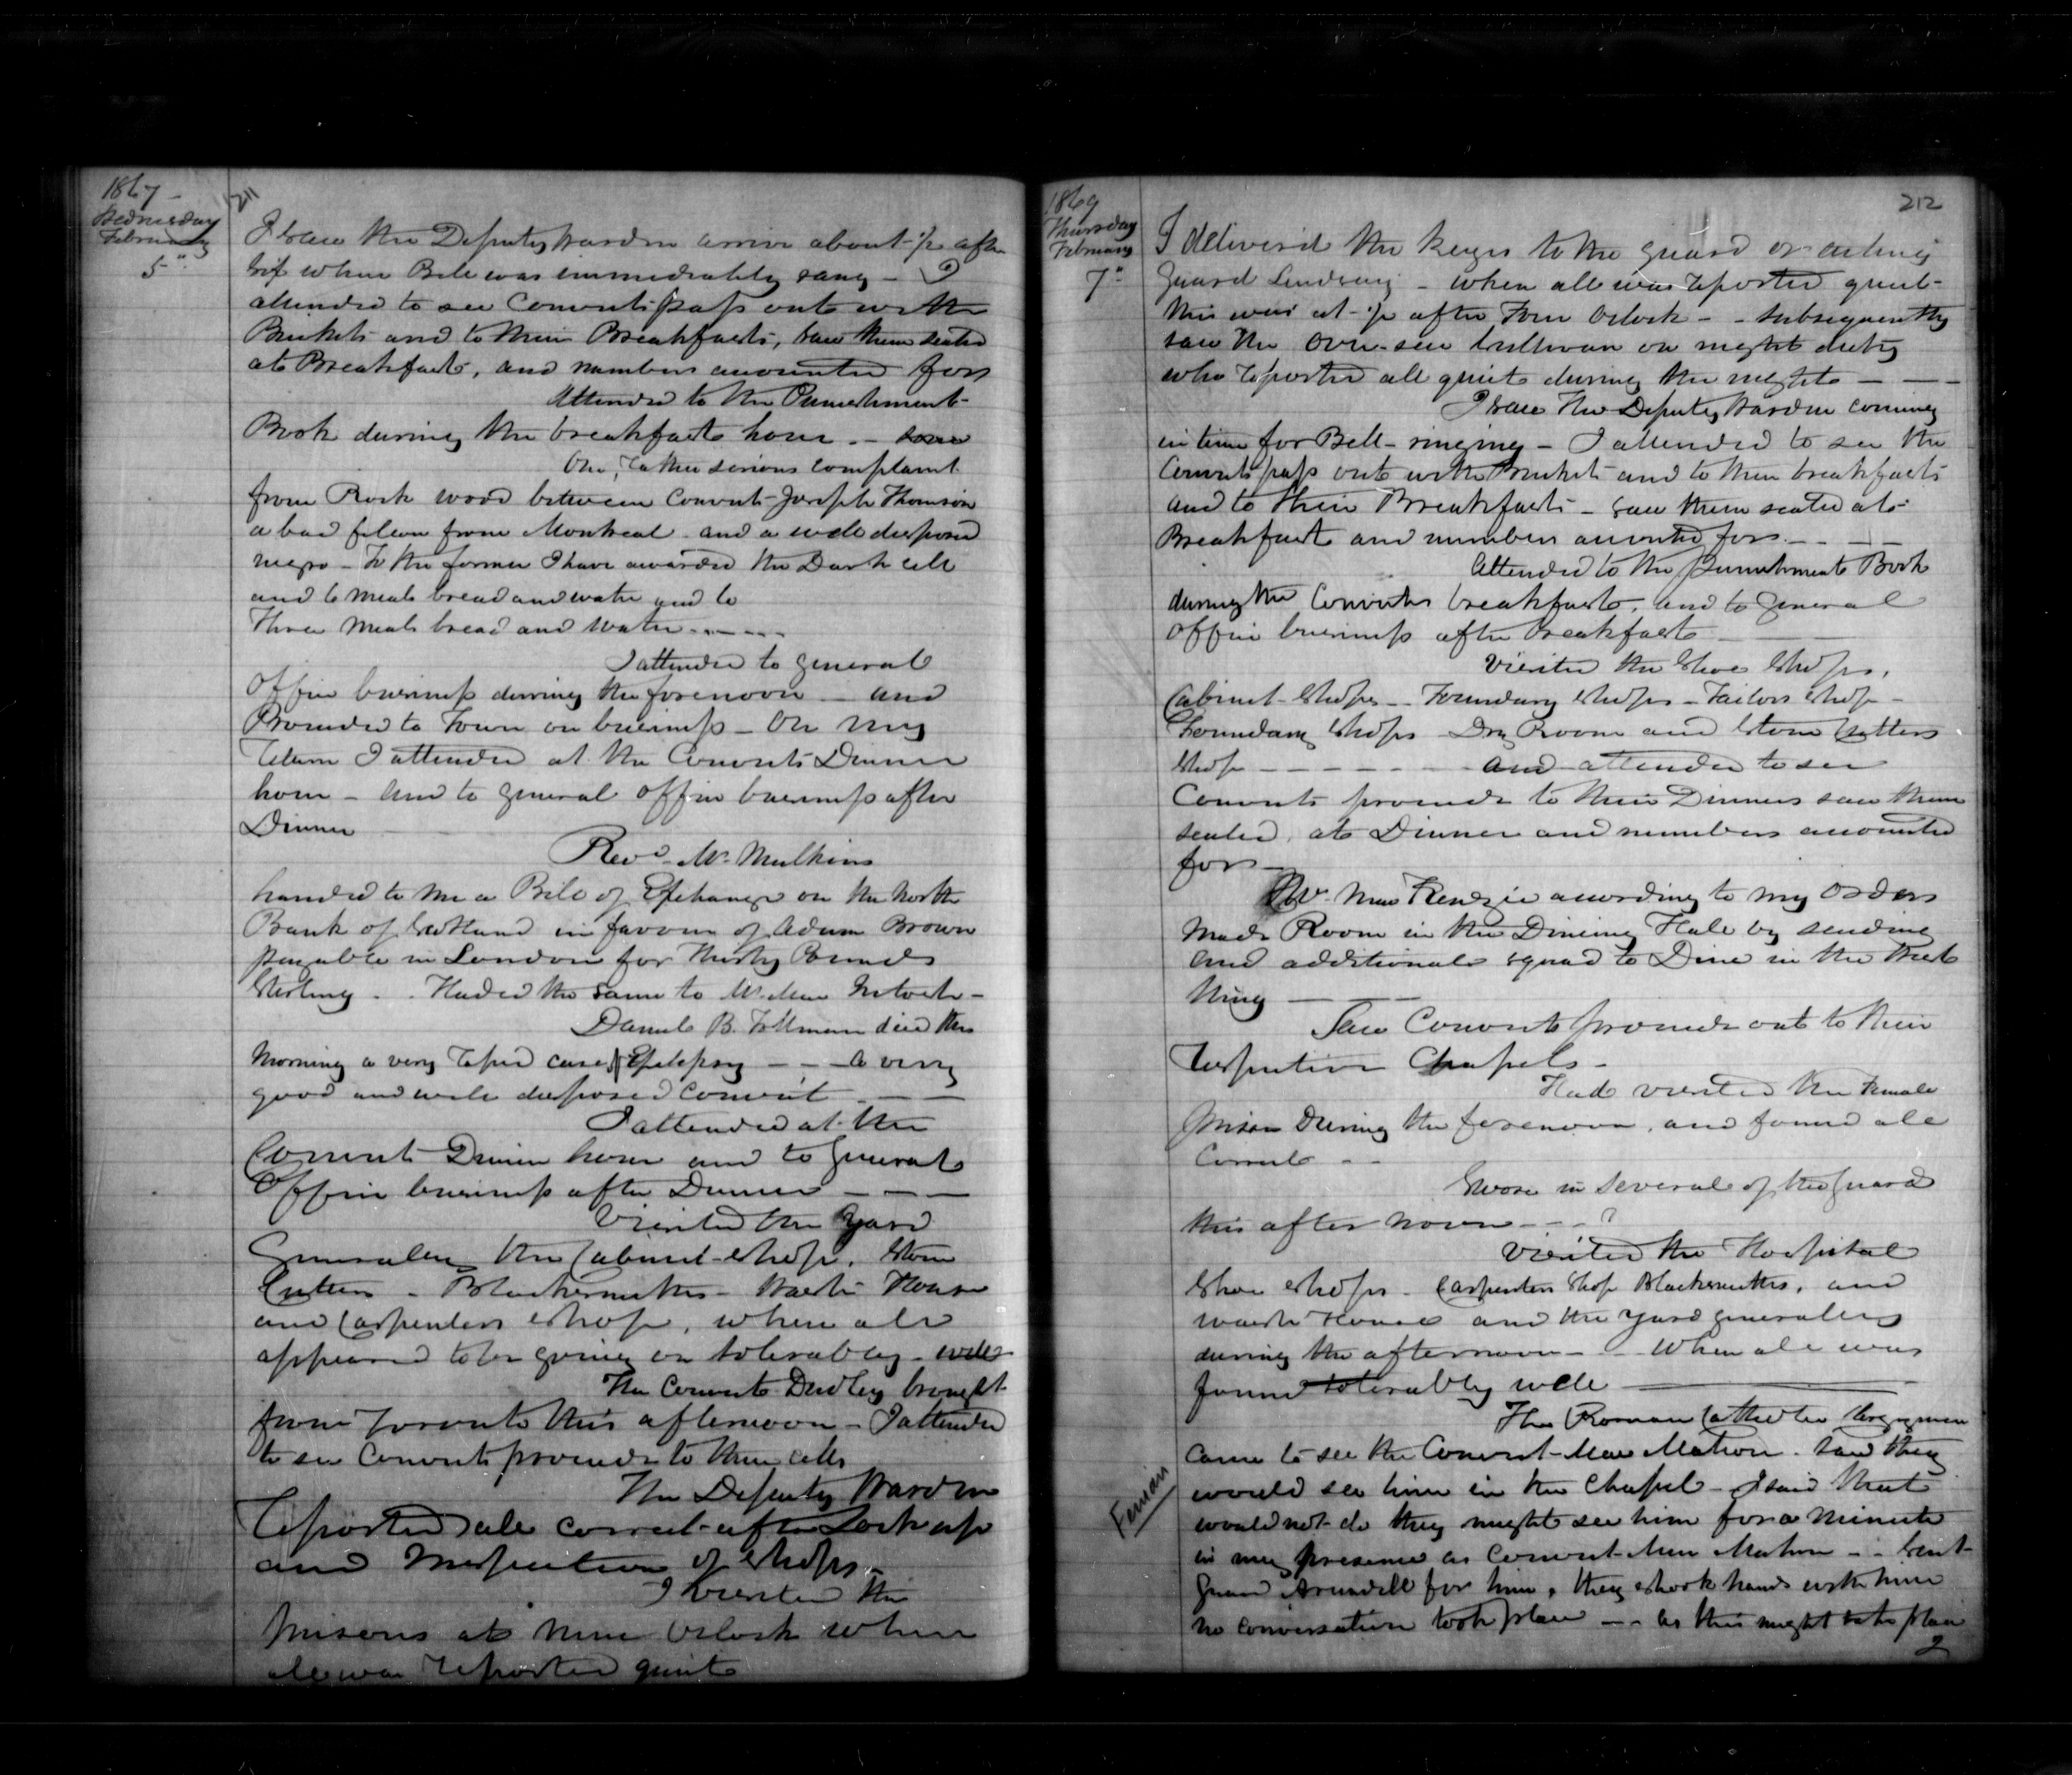 1867
211
Wednesday
February
5"
I saw the Deputy Warden arrive about ½ after
six when Bell was immediately rang - I
attended to see Convicts pass out with
Buckets and to their Breakfasts, saw them seated
at Breakfast, and numbers accounted for
Attended to the Punishment
Book during the breakfast hour. -
One, rather serious complaint
from Rock wood between Convict Joseph Thomson
a bad felon from Montreal and a well disposed
negro - To the former I have awarded the Dark cell
and 6 meals bread and water and to
Three meals bread and water
I attended to general
Office business during the forenoon - and
Proceeded to Town on business - On my
return I attended at the Convicts Dinner
hour - and to general office business after
Dinner
Revd Mr Mulkins
handed to me a Bill of Exchange on the North
Bank of Scotland in favour of Adam Brown
payable in London for Thirty Pounds
Sterling - Handed the same to Mr
Daniel B. died this
morning a very rapid case of Epilepsy - - a very
good and well disposed Convict
I attended at the
Convicts Dinner hour and to general
Office business after Dinner
Visited the Yard
Generally the Cabinet Shop, Stone
Cutters - Blacksmiths - Wash House
and Carpenters shop, when all
appeared to be going on tolerably well
The Convict Dudley brought
from Toronto this afternoon - I attended
to see Convicts proceed to their cells
The Deputy Warden
reported all correct after Lock up
and Inspection of shops -
I visited the
prisons at nine Oclock when
all was reported quiet
212
1869
Thursday
February
7"
I delivered the keys to the guard or acting
guard - when all was reported quiet -
this was at ½ after Four Oclock - - subsequently
saw the Over-seer Sullivan on night duty
who reported all quiet during the night
I saw the Deputy Warden coming
in time for Bell-ringing - I attended to see the
Convicts pass out with Buckets and to their breakfasts
and to their Breakfasts - saw them seated at
Breakfast and numbers accounted for -
Attended to the Punishment Book
during the Convicts breakfast, and to general
office business after breakfast
Visited the Shoe Shops,
Cabinet Shops - Foundary shops - Tailors shop -
Foundary Shops Dry Room and Stone Cutters
Shop - and attended to see
Convicts proceed to their Dinners saw them
seated, at Dinner and numbers accounted
for -
Mr. MacKenzie according to my orders
made Room in the Dining Hall by sending
and additional squad to Dine in the West
Wing
Saw Convicts proceed out to their
respective Chapels -
Had visited the Female
Prison During the forenoon, and found all
Correct -
Swore in several of the guard
this after noon
Visited the Hospital
Shoe shops - Carpenters Shop Blacksmiths, and
wash House and the yard generally
during the afternoon - When all was
found tolerably well
The Roman Catholic Clergymen
came to see the Convict MacMahon. Said they
would see him in the Chapel - I said that
would not do they might see him for a minute
in my presence as Convict MacMahon - - Sent
Guard Arundell for him, they shook hands with him
no conversation took place - - as this might take place
2
Fenian